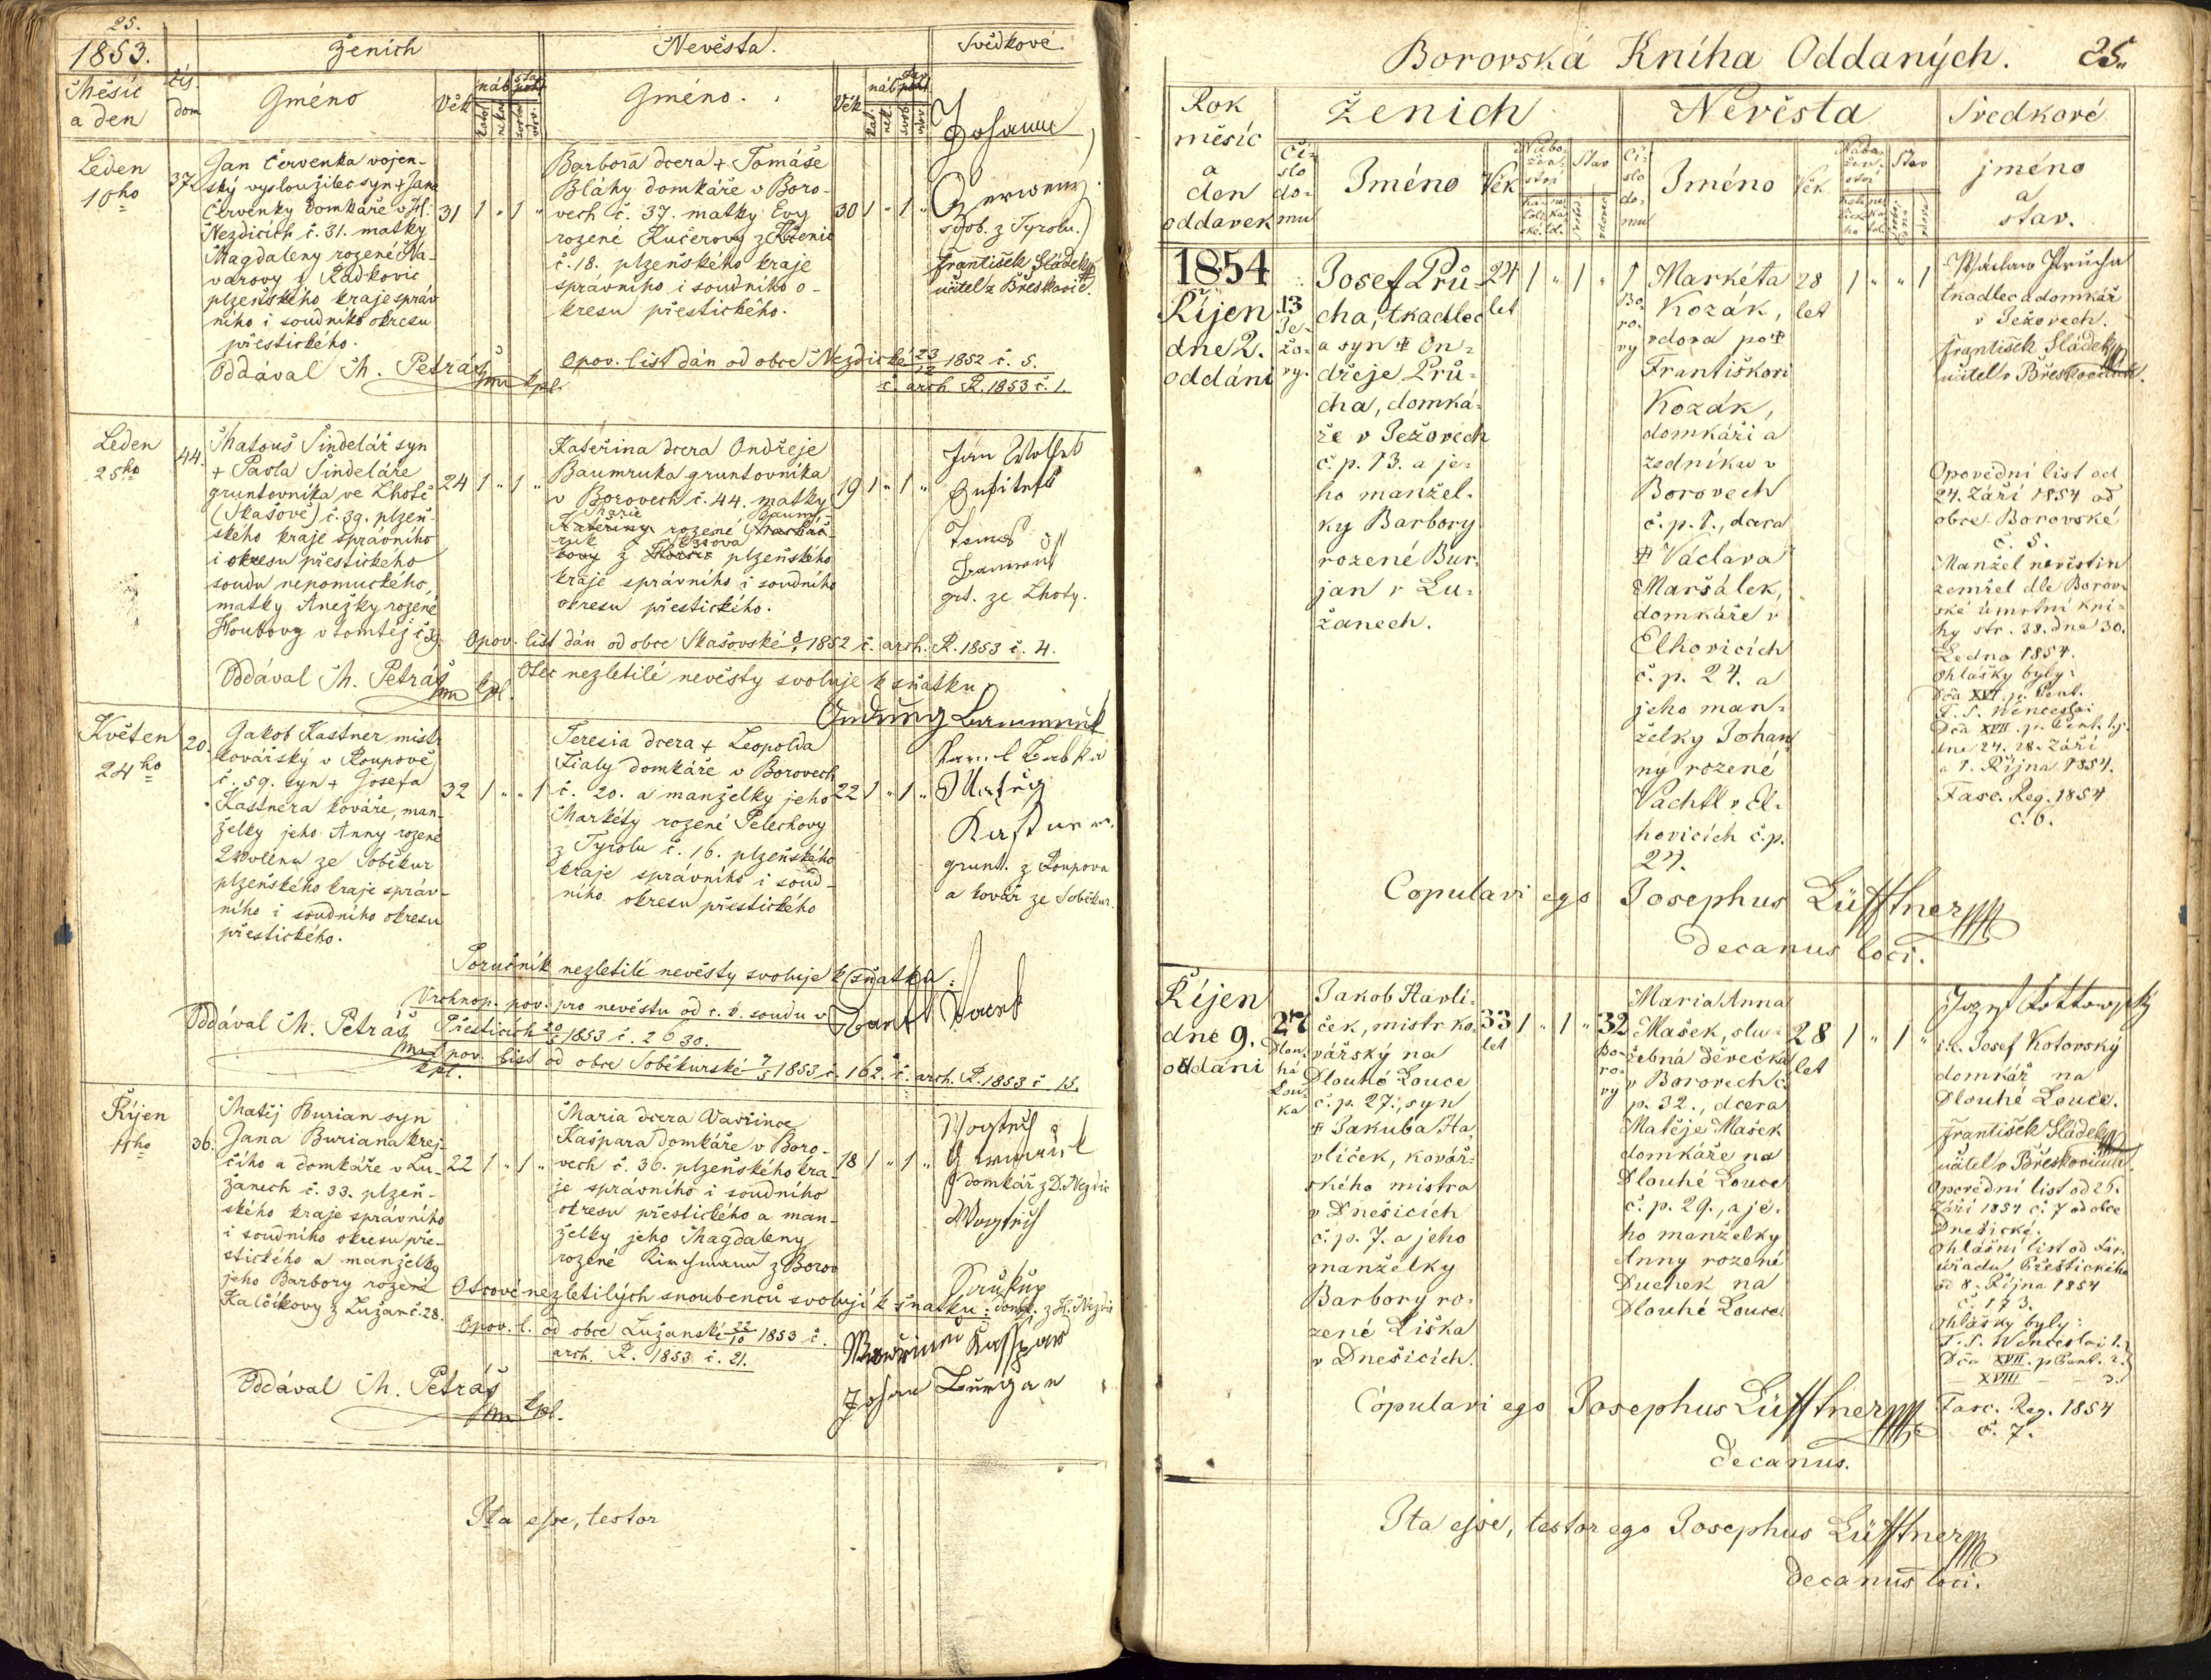 25.
1853.
Ženich
Nevěsta.
Svědkové.
Měsíc
a den
čís.
dom
Gméno
Věk
náb.
Gméno.
Věk
náb.
Leden
10ho
37.
Jan Červenka vojen-
ský vysloužilec syn + Jana
Červenky domkáře v H:
Nezdicích č. 31. matky
Magdaleny rozené Na-
varovy z Radkovic
plzeňského kraje správ
ního i soudního okresu
přestického.
31 1 „ 1 „
Barbora dcera + Tomáše
Bláhy domkáře v Boro-
vech č. 37. matky Evy
rozené Kučerovy z Křenic
č. 18. plzeňského kraje
správního i soudního o-
kresu přestického.
30 1 „ 1 „
Johann
svob. z Tyrolu.
František Sládek
učitel z Břeskovic.
Oddával M. Petráš
kpl.
Opov. list dán od obce Nezdické 23/12 1852 č. 5.
č. arch R. 1853 č. 1.
Leden
25ho
44.
Matouš Šindelář syn
+ Pavla Šindeláře
gruntovníka ve Lhotě
(Skašově) č. 39. plzeň-
ského kraje správního
i okresu přestického
soudu nepomuckého,
matky Anežky rozené
Houbovy v tomtéž č 39.
24 1 „ 1 „
Kateřina dcera Ondřeje
Baumruka gruntovníka
v Borovech č. 44. matky
Marie Baum-
Kateřiny rozené
ruk
z plzeňského
kraje správního i soudního
okresu přestického.
19 1 „ 1 „
grt. ze Lhoty.
Opov. list dán od obce Skašovské 1852 č. arch. R. 1853 č. 4.
Oddával M. Petráš
kpl.
Otec nezletilé nevěsty svoluje k sňatku
Květen
24ho
20.
Jakob Kastner mistr
kovářský v Roupově
č. 59. syn + Josefa
Kastnera kováře, man-
želky jeho Anny rozené
ze Soběkur
plzeňského kraje správ-
ního i soudního okresu
přestického.
32 1 „ „ 1
Teresia dcera + Leopolda
Fialy domkáře v Borovech
č. 20. a manželky jeho
Markéty rozené Pelechovy
z Tyrolu č. 16. plzeňského
kraje správního i soud-
ního okresu přestického
22 1 „ 1 „
grunt. z Roupova
a kovář ze Soběkur.
Poručník nezletilé nevěsty svoluje k sňatku:
Vrchnop. pov. pro nevěstu od c. k. soudu v
Oddával M. Petráš
Přesticích 20/5 1853 č. 2630.
kpl.
Opov. list od obce Soběkurské 7/5 1853 č. 162. č. arch. R. 1853 č 15.
Říjen
11ho
36.
Matěj Burian syn
Jana Buriana krej-
čího a domkáře v Lu-
žanech č. 33. plzeň-
ského kraje správního
i soudního okresu pře-
stického a manželky
jeho Barbory rozené
Kalčíkovy z Lužan č. 28.
22 1 „ 1 „
Maria dcera Vavřince
Kašpara domkáře v Boro-
vech č. 36. plzeňského kra-
je správního i soudního
okresu přestického a man-
želky jeho Magdaleny
rozené z Borov
18 1 „ 1 „
domkář z D. Nezdic
Otcové nezletilých snoubenců svolují k sňatku:
domk. z H. Nezdic
Opov. l. od obce Lužanské 22/10 1853 č.
arch. R. 1853 č. 21.
Johan Burgan
Oddával M. Petráš
kpl.
Ita esse, testor
Borovská Kniha Oddaných.
25.
Rok
měsíc
a
den
oddavek
Ženich
Nevěsta
Svedkové
Čí-
slo
do-
mu
Jméno
Věk
Nábo-
žen-
ství
Stav
Čí-
slo
do-
mu
Jméno
Věk
Nábo-
žen-
ství
Stav
jméno
a
stav.
1854
Říjen
dne 2.
oddáni
13
Je-
žo-
vy.
Josef Prů-
cha, tkadlec
a syn + On-
dřeje Prů-
cha, domká-
ře v Ježovech
č. p. 13. a je-
ho manžel-
ky Barbory
rozené Bur-
jan v Lu-
žanech.
24
let
1 „ 1 „
1
Bo-
ro-
vy
Markéta
Kozák,
vdova po +
Františkovi
Kozák,
domkáři a
zedníku v
Borovech
č. p. 1., dcera
+ Václava
Maršálek,
domkáře v
Elhovicích
č. p. 24. a
jeho man-
želky Johan
ny rozené
Vachtl v El-
hovicích č. p.
24.
28
let
1 „ „ 1
Wáclaw Průcha
tkadlec a domkář
v Ježovech.
František Sládek
učitel v Břeskovicích.
Opovědní list od
24. Září 1854 od
obce Borovské
č. 5.
Manžel nevěstin
zemřel dle Borov-
ské úmrtní kni-
hy str. 38. dne 30.
Ledna 1854.
Ohlášky byly:
Dča XVI. p. Pent.
F. S. Wenceslai
Dča XVII p. Pent. t. j.
dne 24. 28. Září
a 1. Října 1854.
Fasc. Reg. 1854
č. 6.
Copulavi ego Josephus Lüfftner
decanus loci.
Říjen
dne 9.
oddáni
27
Dlou-
há
Lou-
ka
Jakob Havlí-
ček, mistr ko-
vářský na
Dlouhé Louce
č. p. 27., syn
+ Jakuba Ha
vlíček, kovář-
ského mistra
v Dnešicích
č. p. 7. a jeho
manželky
Barbory ro-
zené Liška
v Dnešicích.
33
let
1 „ 1 „
32
Bo-
ro-
vy
Maria Anna
Mašek, slu-
žebná děvečka
v Borovech č.
p. 32., dcera
Matěje Mašek
domkáře na
Dlouhé Louce
č. p. 29., a je-
ho manželky
Anny rozené
Duchek na
Dlouhé Louce.
28
let
1 „ 1 „
Jozef Kottowský
i. e. Josef Kotovský
domkář na
Dlouhé Louce.
František Sládek
učitel v Břeskovicích.
Opovědní list od 26.
Září 1854 č. 7 od obce
Dnešické.
Ohlášní list od far.
úřadu Přestického
od 8. Října 1854
č. 173.
Ohlášky byly:
F. S. Wenceslai 1.
Dča XVII. p Pent. 2.
— XVIII — — 3.
Fasc. Reg. 1854
č. 7.
Copulavi ego Josephus Lüfftner
decanus.
Ita esse, testor ego Josephus Lüfftner
decanus loci.